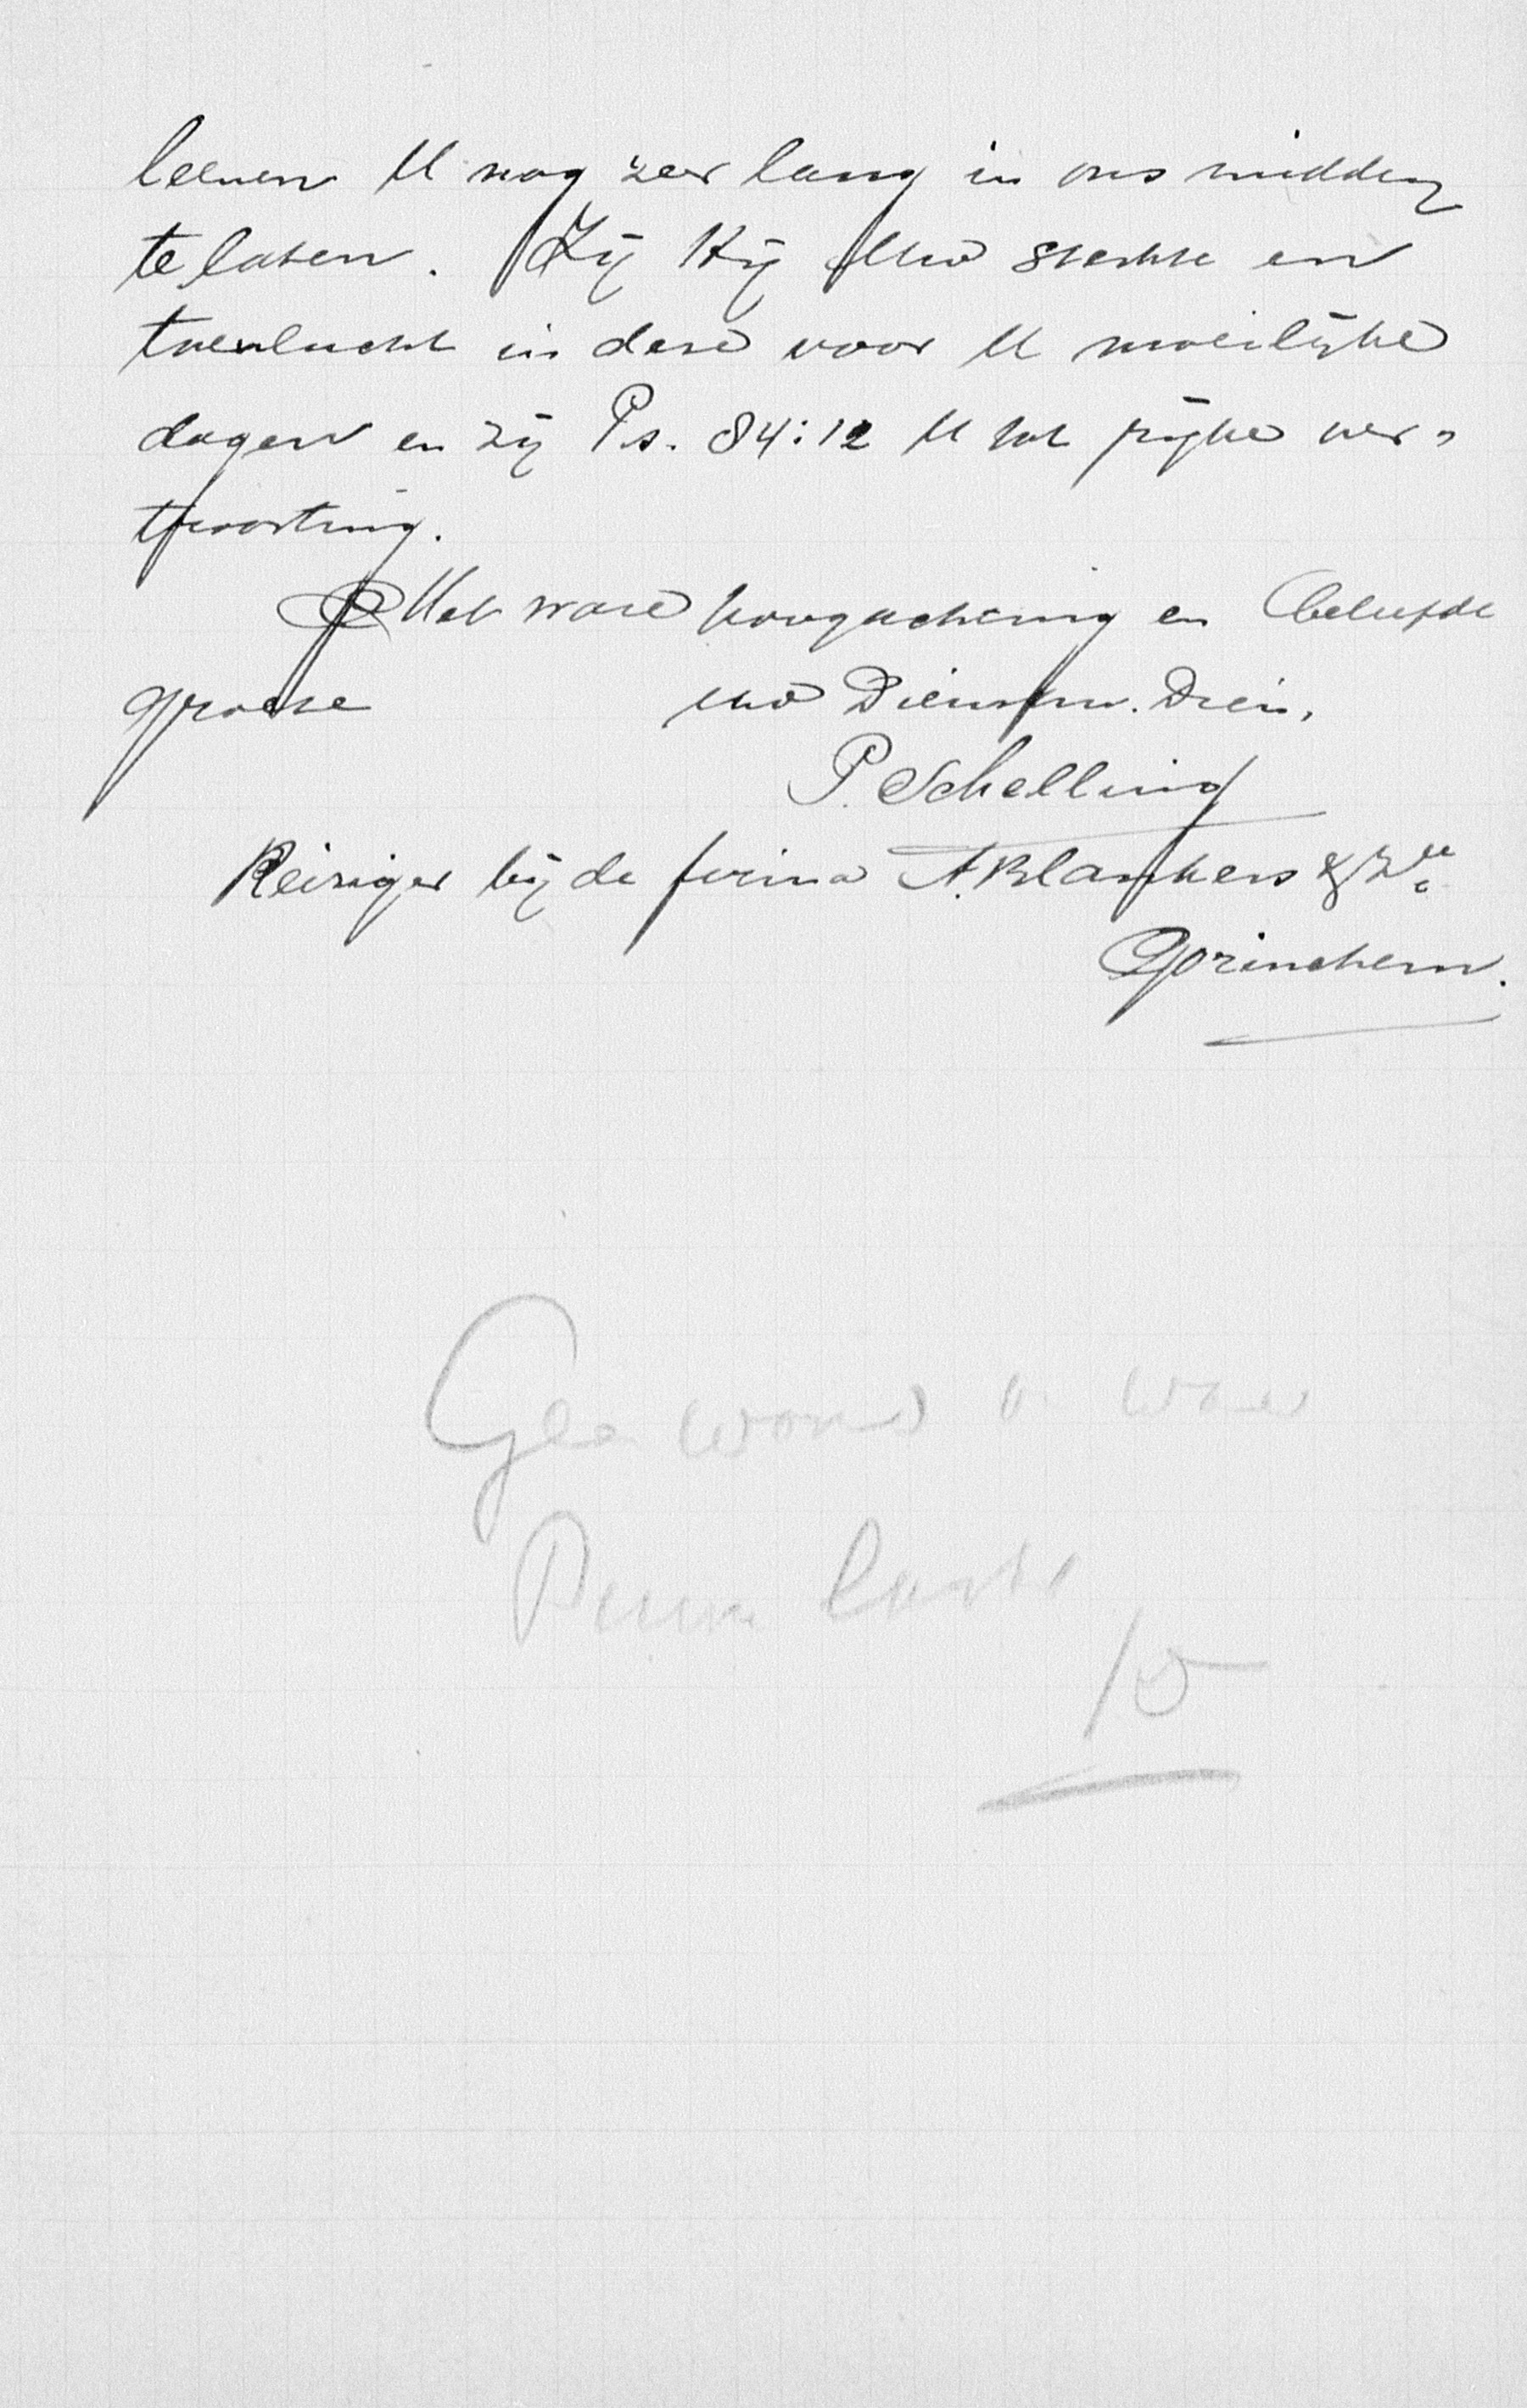 leenen U nog zeer lang in ons midden
te laten. Zij Hij Uwe sterkte en
toevlucht in deze voor U moeilijke
dagen en zij Ps. 84:12 U tot rijke ver-
troosting.
Met ware hoogachting en beleefde
groete uwe Dienstw. Dien.
P. Schelling
Reiziger bij de firma A. Blankers & Zn
Gorinchem.
10